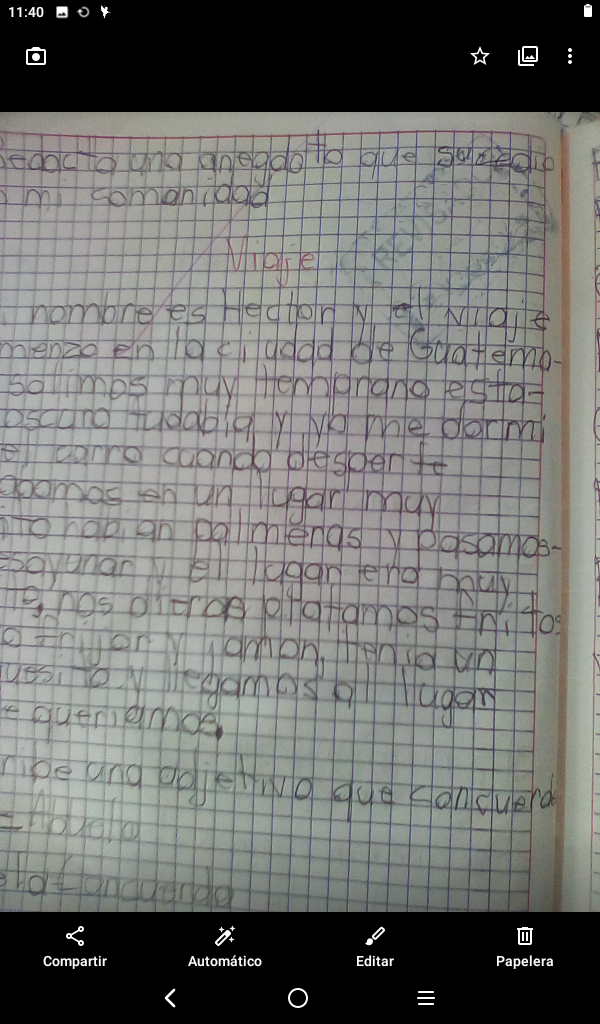 11:40
edacta una anegdoto que sucedio
mi comonidad
Viaje
nombre es Hector y el viaje
menzo en la ciudad de Guatema-
salimos muy temprano esta-
oscuro tudabia y yo me dormi
el carro cuando desperte
abamos en un lugar muy
ito habian palmeras y pasamos-
esayunar y el lugar era muy
nos dieron platamos fritos
frijor y jamon, tenia un
quesito y llegamos al lugar
e queriamos.
ribe una adjetivo que concuerd
= Abuela
Compartir
Automático
Editar
Papelera